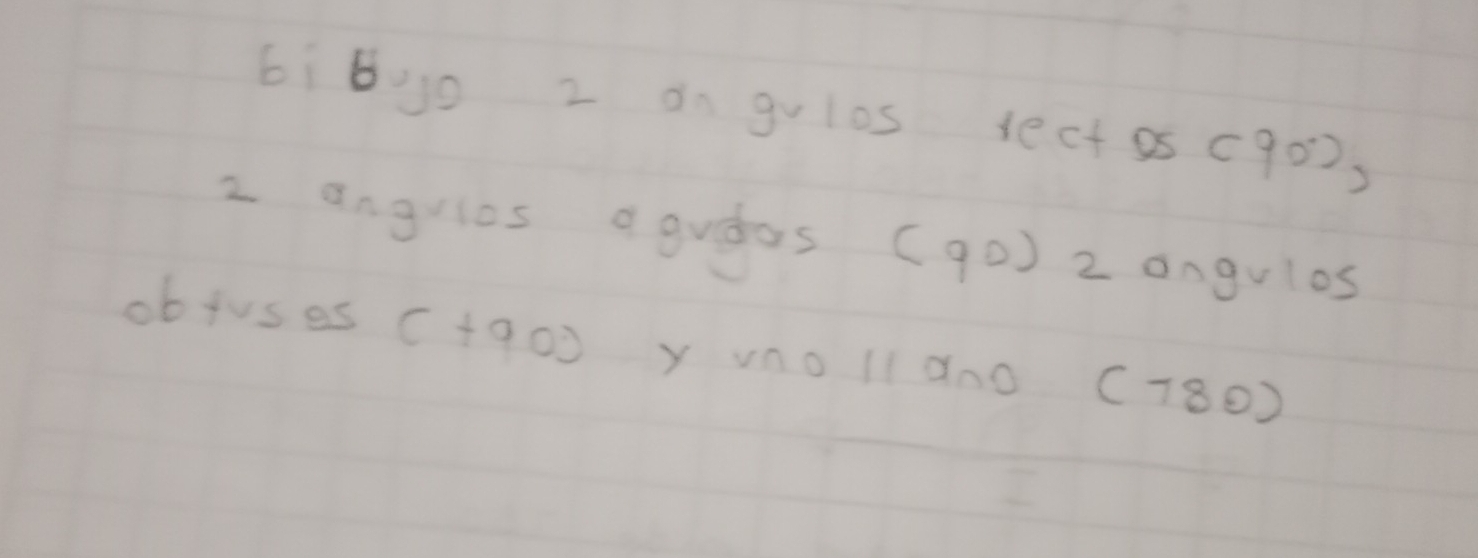 bibujo 2 angulos rectos (90),
2 angulos agudos (90) 2 angulos
obtusos (+90) y uno llano (180)